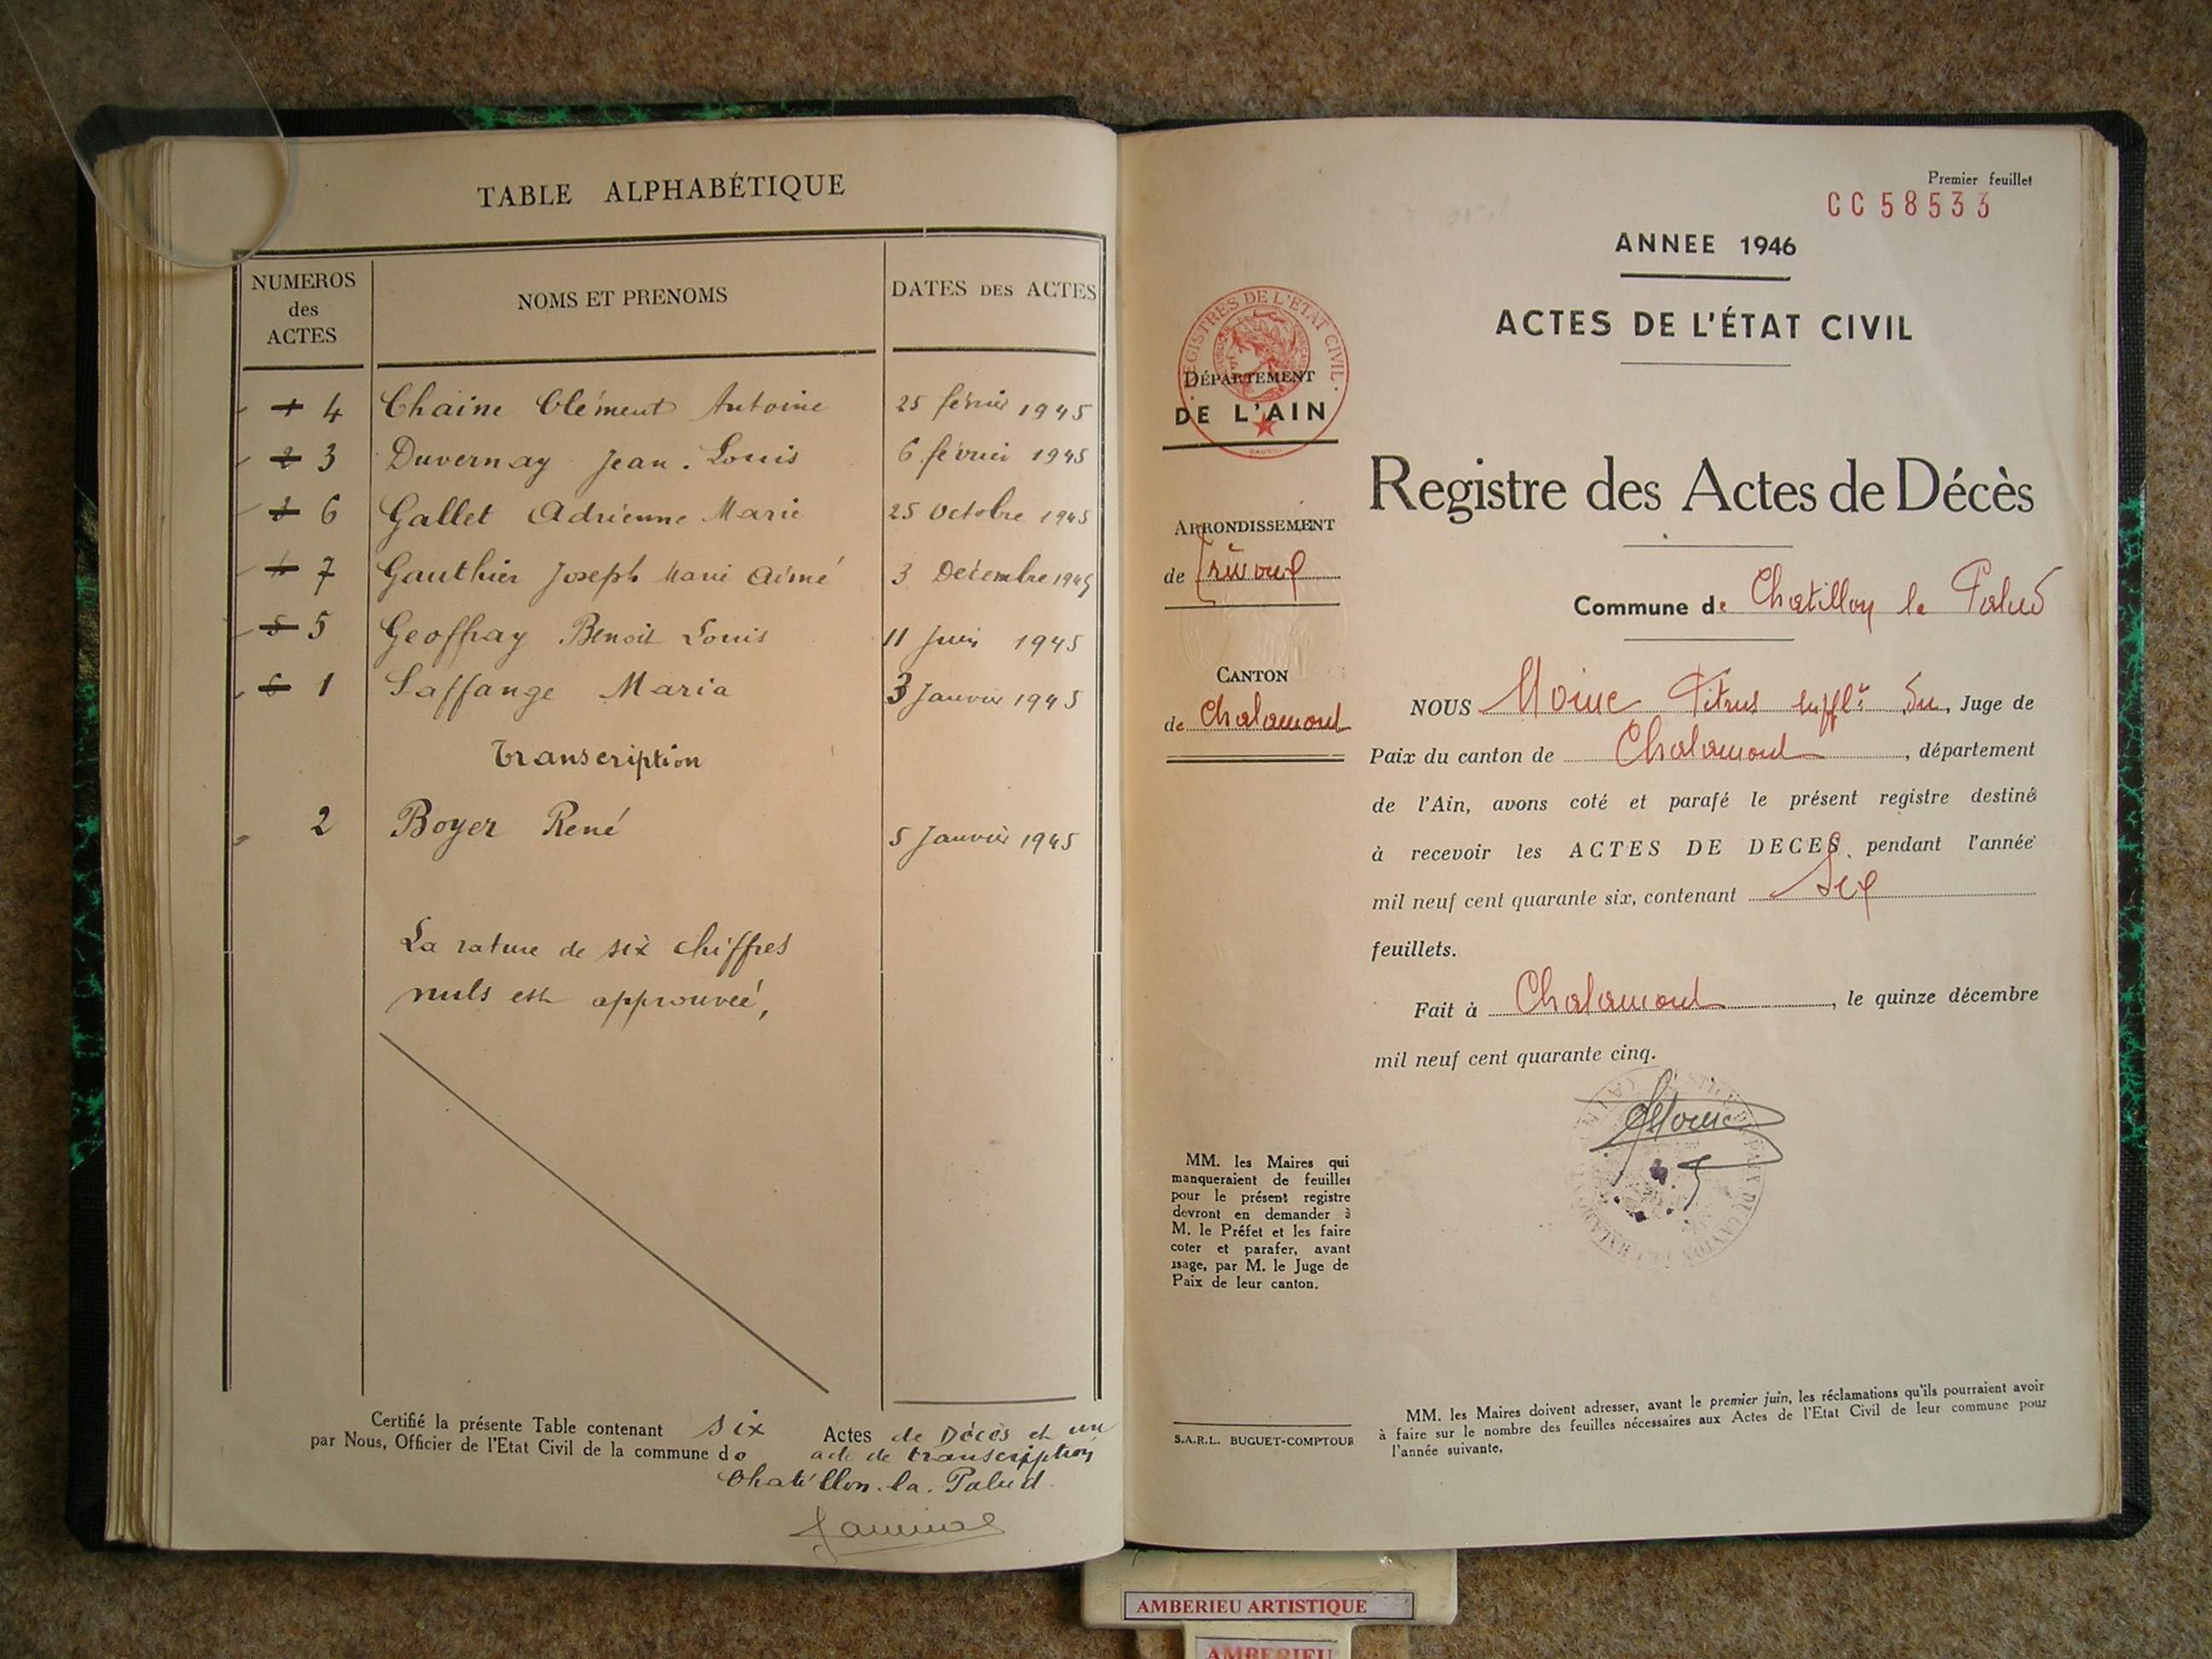 TABLE ALPHABÉTIQUE
NUMEROS des ACTES NOMS ET PRENOMS DATES DES ACTES
1 4 Chaine Clément Antoine 25 février 1945
2 3 Duvernay Jean. Louis 6 février 1945
3 6 Gallet Adrienne Marie 25 Octobre 1945
4 7 Gauthier Joseph Marie Aimé 3 Décembre 1945
5 5 Geoffray Benoit Louis 11 Juin 1945
6 1 Laffange Maria 3 Janvier 1945
Transcription
2 Boyer René 5 Janvier 1945
La rature de six chiffres
nuls est approuvée,
Certifié la présente Table contenant six Actes de Décès et un
par Nous, Officier de l'Etat Civil de la commune de acte de transcription
Chatillon. la. Palud.
Premier feuillet
CC 58533
ANNEE 1946
ACTES DE L'ÉTAT CIVIL
REGISTRES DE L'ETAT CIVIL
DÉPARTEMENT
DE L'AIN
Registre des Actes de Décès
ARRONDISSEMENT
de Trévoux
Commune de Chatillon la Palud
CANTON
de Chalamont
NOUS Moine Pitrus suppl.t du, Juge de
Paix du canton de Chalamont, département
de l'Ain, avons coté et parafé le présent registre destiné
à recevoir les ACTES DE DECES, pendant l'année
mil neuf cent quarante six, contenant Six
feuillets.
Fait à Chalamont, le quinze décembre
mil neuf cent quarante cinq.
MM. les Maires qui
manqueraient de feuilles
pour le présent registre
devront en demander à
M. le Préfet et les faire
coter et parafer, avant
usage, par M. le Juge de
Paix de leur canton.
S.A.R.L. BUGUET-COMPTOUR
MM. les Maires doivent adresser, avant le premier juin, les réclamations qu'ils pourraient avoir
à faire sur le nombre des feuilles nécessaires aux Actes de l'Etat Civil de leur commune pour
l'année suivante.
AMBERIEU ARTISTIQUE
AMBERIEU